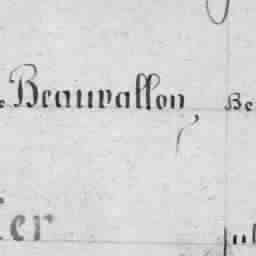 Beauvallon,
Be
er